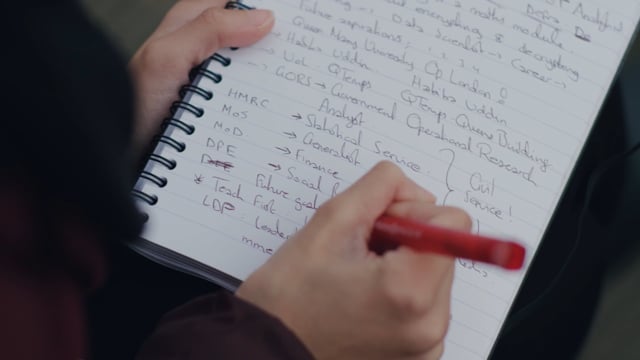 a maths module.
Data Analyst
encrypting & decrypting
Future aspirations: Data Scientist → Career →
Queen Mary University Of London!
→ Habiba Uddin Habiba Uddin
→ UoL QTemps QTemps Queens Building.
→ GORS → Government Operational Research
HMRC Analyst
MoS → Statistical Service.
MoD → Generalist
DPE → Finance Civil
→ Social Service!
* Teach First Future
LDP: Leaders